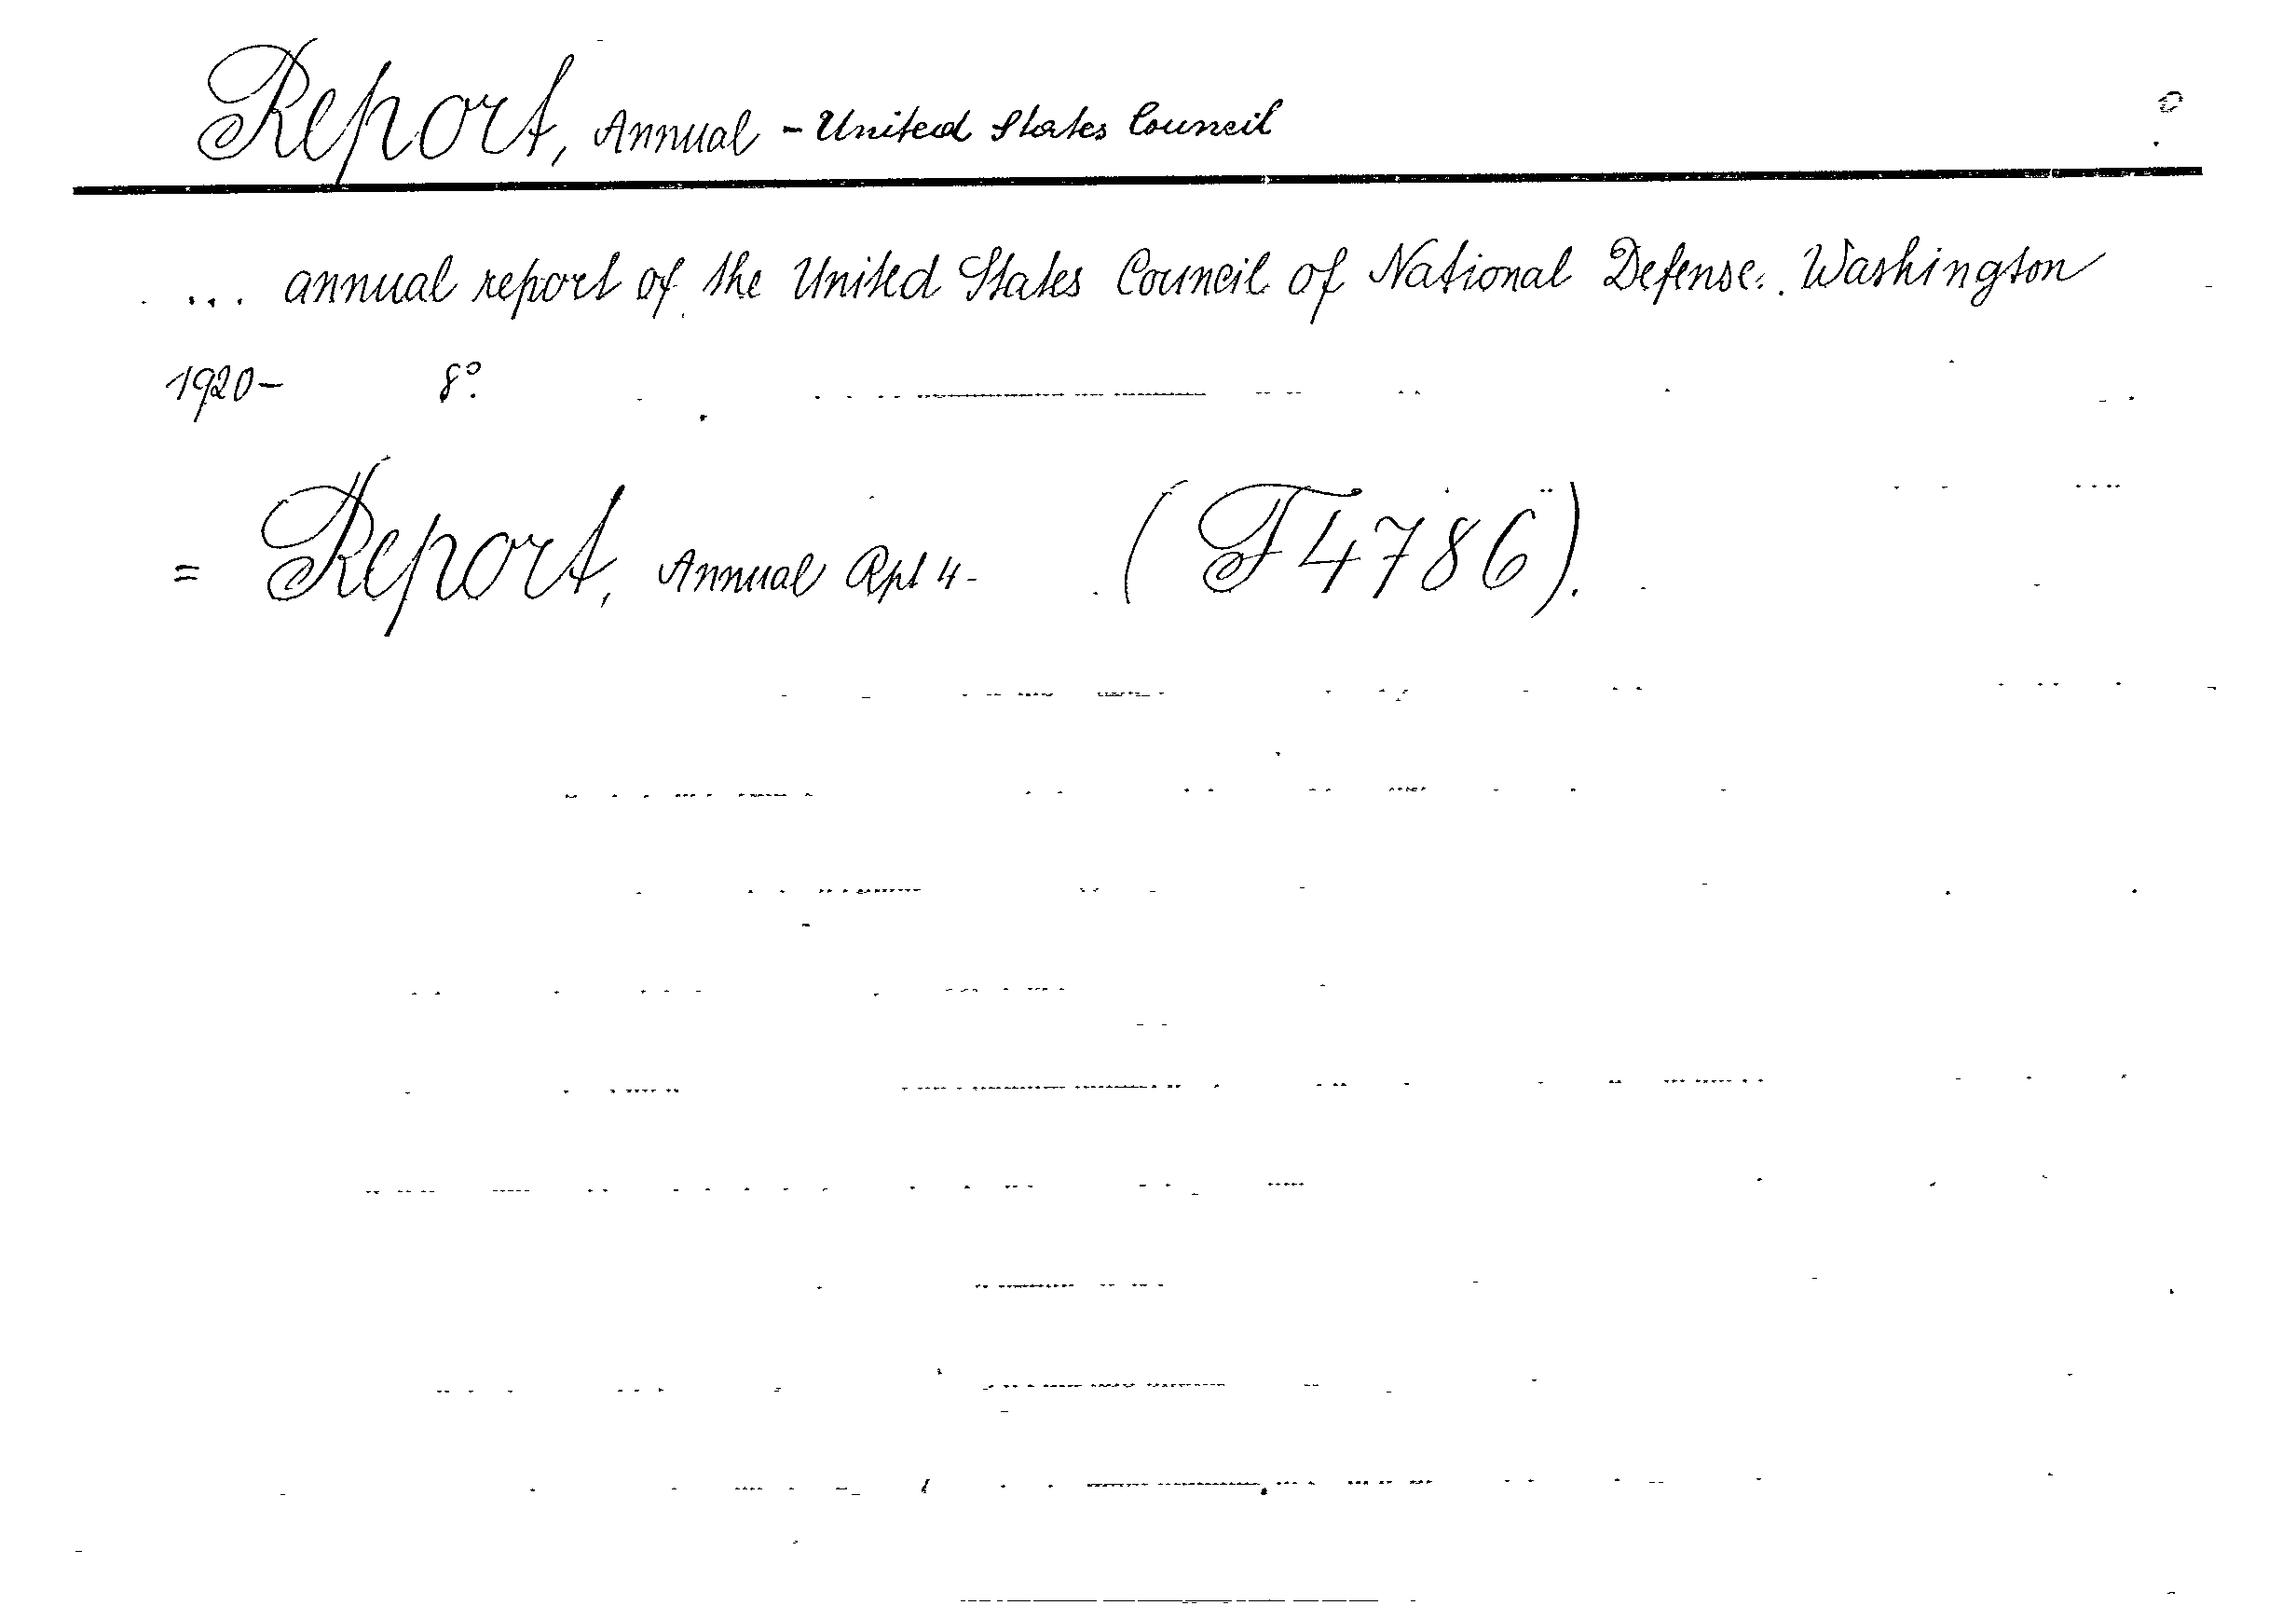 Report, Annual - United States Council
... annual report of the United States Council of National Defense. Washington
1920- 8°.
= Report, Annual Rpt 4- (F4786).